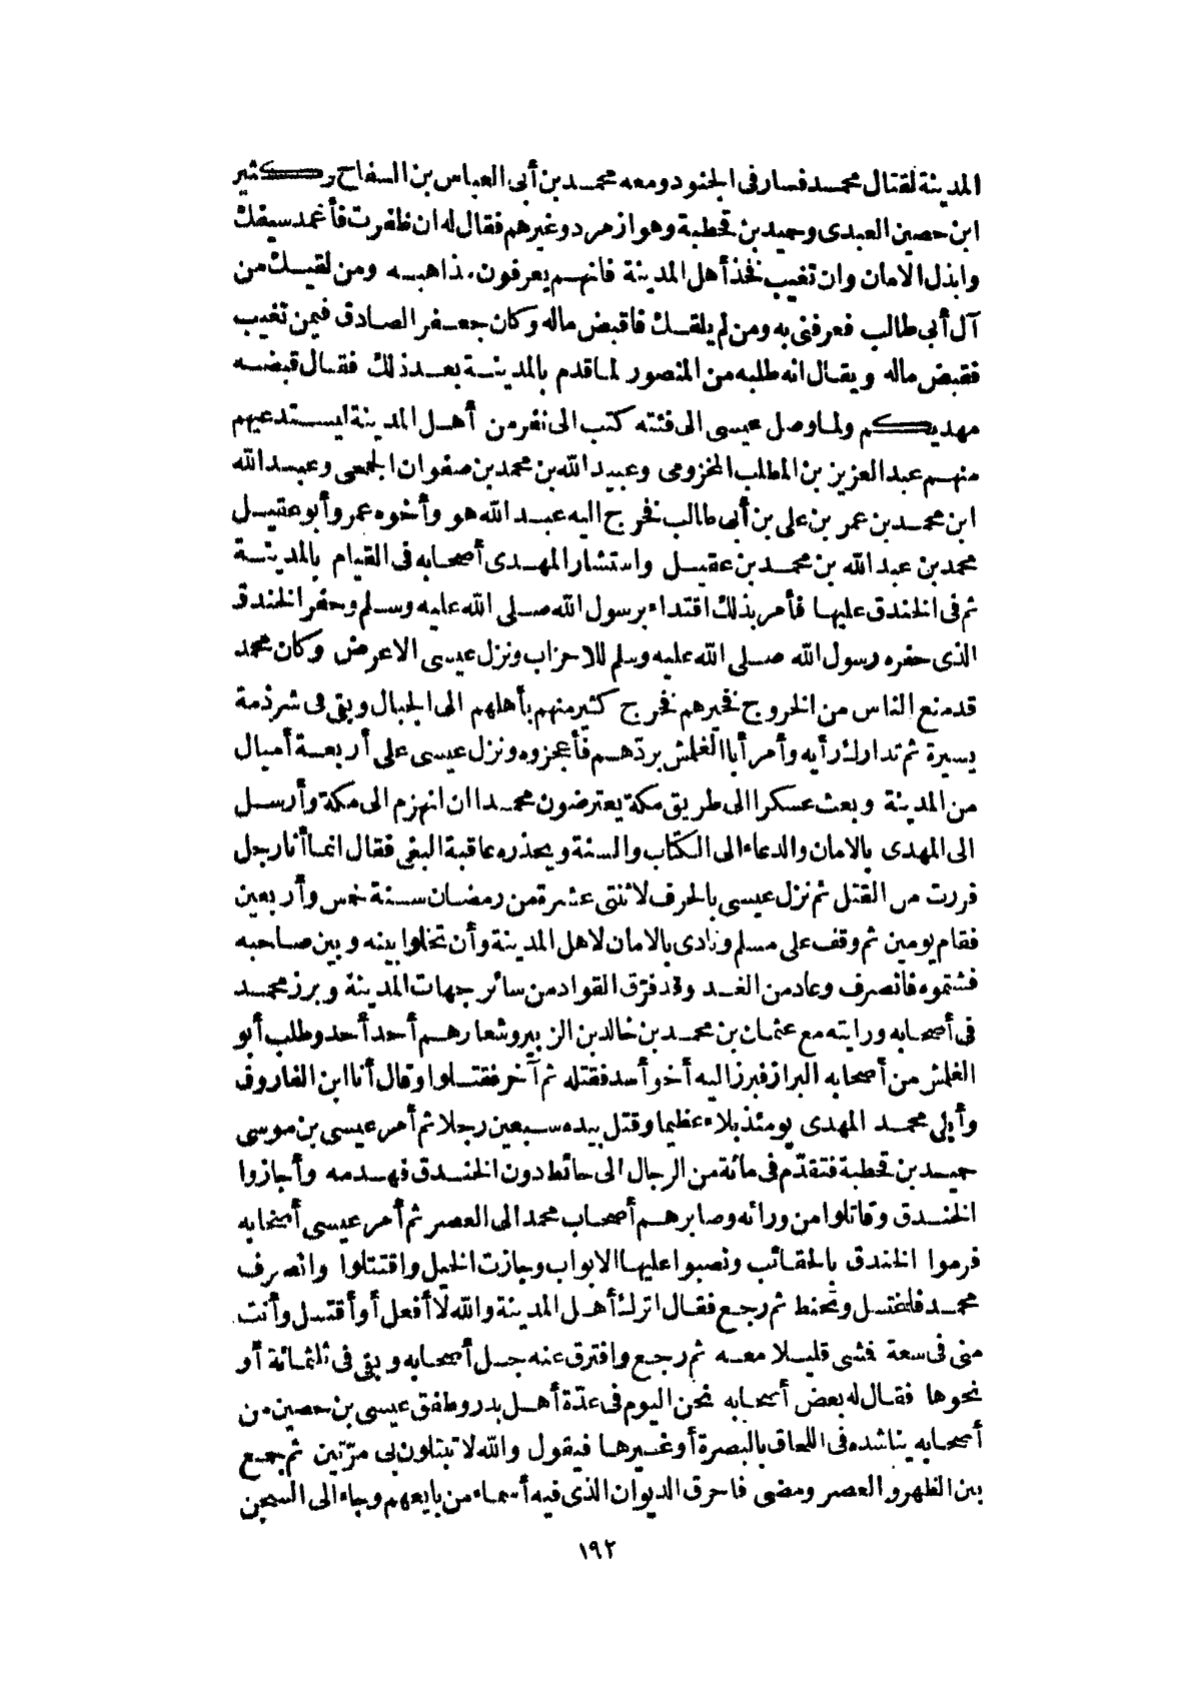 المدينة لقتال محمد فسار فى الجنود ومعه محمد بن أبى العباس بن السفاح وكثير
ابن حصين العبدى وحميد بن قحطبة وهوازمرد وغيرهم فقال له ان ظفرت فأغمد سيفك
وابذل الامان وان تغيب فخذ أهل المدينة فانهم يعرفون مذاهبه ومن لقيك من
آل أبى طالب فعرفنى به ومن لم يلقك فاقبض ماله وكان جعفر الصادق فيمن تغيب
فقبض ماله ويقال انه طلبه من المنصور لما قدم بالمدينة بعد ذلك فقال قبضه
مهديكم ولما وصل عيسى الى فئته كتب الى نفر من أهل المدينة ليستدعيهم
منهم عبد العزيز بن المطلب المخزومى وعبيد الله بن محمد بن صفوان الجمعى وعبد الله
ابن محمد بن عمر بن على بن أبى طالب فخرج اليه عبد الله هو وأخوه عمر وأبو عقيل
محمد بن عبد الله بن محمد بن عقيل واستشار المهدى أصحابه فى القيام بالمدينة
ثم فى الخندق عليها فأمر بذلك اقتداء برسول الله صلى الله عليه وسلم وحفر الخندق
الذى حفره رسول الله صلى الله عليه وسلم للاحزاب ونزل عيسى الاعرض وكان محمد
قد منع الناس من الخروج فخيرهم فخرج كثير منهم بأهلهم الى الجبال وبقى فى شرذمة
يسيرة ثم تدارك رأيه وأمر أبا الغلمش بردّهم فأعجزوه ونزل عيسى على أربعة أميال
من المدينة وبعث عسكرا الى طريق مكة يعترضون محمدا ان انهزم الى مكة وأرسل
الى المهدى بالامان والدعاء الى الكتاب والسنة ويحذره عاقبة البغى فقال انما أنا رجل
فررت من القتل ثم نزل عيسى بالحرف لاثنتى عشرة من رمضان سنة خمس وأربعين
فقام يومين ثم وقف على مسلم ونادى بالامان لاهل المدينة وأن تخلوا بينه وبين صاحبه
فشتموه فانصرف وعاد من الغد وقد فرّق القواد من سائر جهات المدينة وبرز محمد
فى أصحابه ورايته مع عثمان بن محمد بن خالد بن الزبير وشعارهم أحد أحد وطلب أبو
الغلمش من أصحابه البراز فبرز اليه أخو أسد فقتله ثم آخر فقتله وقال أنا ابن الفاروق
وأبلى محمد المهدى يومئذ بلاء عظيما وقتل بيده سبعين رجلا ثم أمر عيسى بن موسى
حميد بن قحطبة فتقدّم فى مائة من الرجال الى حائط دون الخندق فهدمه وأجازوا
الخندق وقاتلوا من ورائه وصابرهم أصحاب محمد الى العصر ثم أمر عيسى أصحابه
فرموا الخندق بالحقائب ونصبوا عليها الابواب وجازت الخيل واقتتلوا وانصرف
محمد فاغتسل وتحنط ثم رجع فقال اترك أهل المدينة والله لا أفعل أو أقتل وأنت
منى فى سعة فمشى قليلا معه ثم رجع وافترق عنه جل أصحابه وبقى فى ثلثمائة أو
نحوها فقال له بعض أصحابه نحن اليوم فى عدّة أهل بدر وطفق عيسى بن حصين من
أصحابه يناشده فى اللحاق بالبصرة أو غيرها فيقول والله لا تبتلون بى مرّتين ثم جمع
بين الظهر والعصر ومضى فاحرق الديوان الذى فيه أسماء من بايعهم وجاء الى السجن
١٩٢